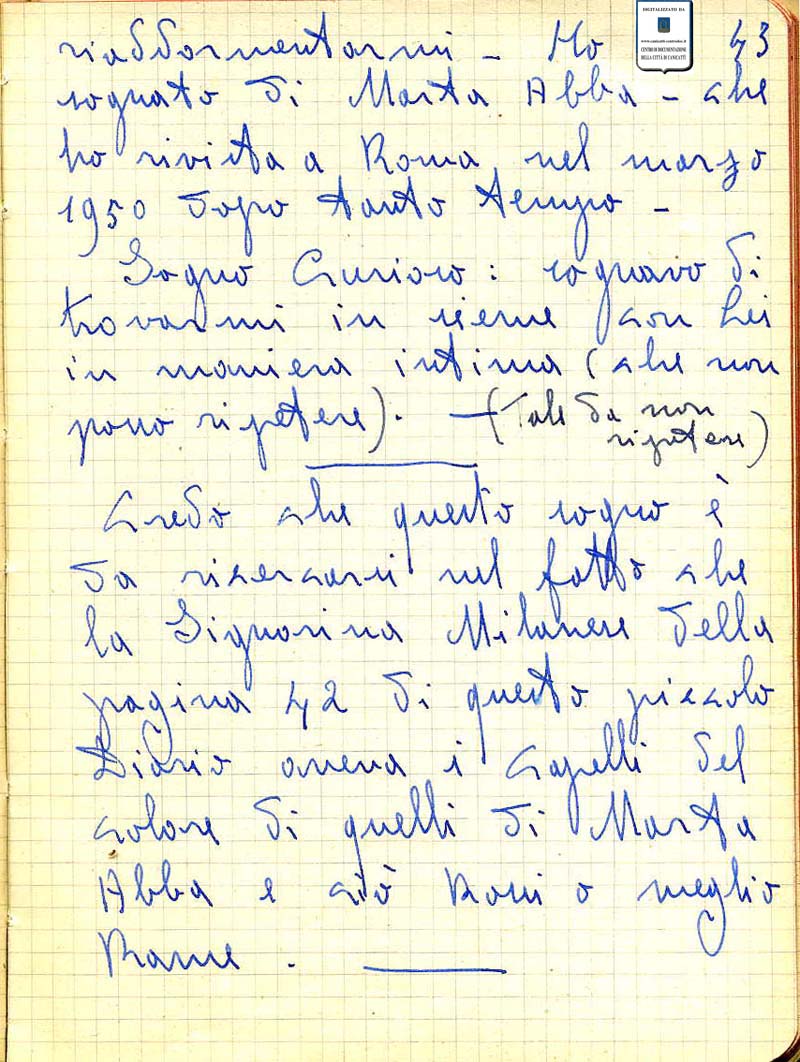 DIGITALIZZATO DA
CENTRO DI DOCUMENTAZIONE
DELLA CITTÀ DI CANICATTÌ
riaddormentarmi - Ho 43
sognato di Marta Abba - che
ho rivista a Roma nel marzo
1950 dopo tanto tempo -
Sogno Curioso : sognavo di
trovarmi in sieme con Lei
in maniera intima (che non
posso ripetere). - (Tale da non
ripetere)
Credo che questo sogno è
da ricercarsi nel fatto che
la Signorina Milanese della
pagina 42 di questo piccolo
Diario aveva i Capelli del
colore di quelli di Marta
Abba e ciò Rossi o meglio
Rame .